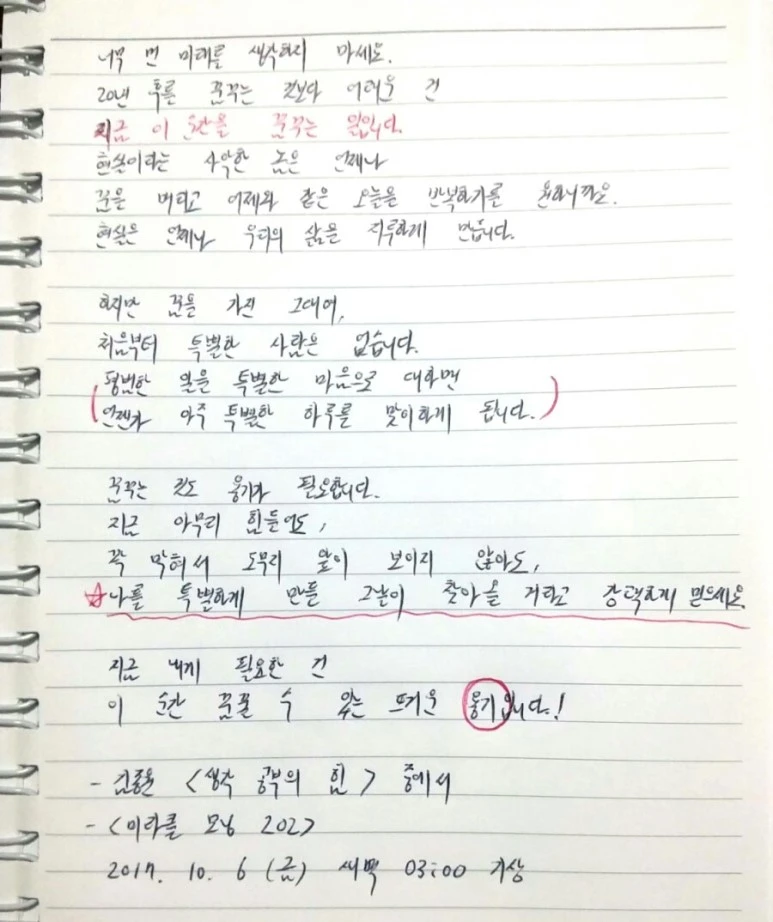 너무 먼 미래를 생각하지 마세요.
20년 후를 꿈꾸는 것보다 어려운 건
지금 이 순간을 꿈꾸는 일입니다.
현실이라는 사악한 놈은 언제나
꿈을 버리고 어제와 같은 오늘을 반복하기를 원하니까요.
현실은 언제나 우리의 삶을 지루하게 만듭니다.
하지만 꿈을 가진 그대여,
처음부터 특별한 사람은 없습니다.
(평범한 일을 특별한 마음으로 대하면
언젠가 아주 특별한 하루를 맞이하게 됩니다.)
꿈꾸는 것도 용기가 필요합니다.
지금 아무리 힘들어도,
꽉 막혀서 도무지 앞이 보이지 않아도,
☆나를 특별하게 만들 그날이 찾아올 거라고 강력하게 믿으세요.
지금 내게 필요한 건
이 순간 꿈꿀 수 있는 뜨거운 용기입니다.!
- 김종원 <생각 공부의 힘> 중에서
- <미라클 모닝 202>
2017. 10. 6 (금) 새벽 03:00 기상